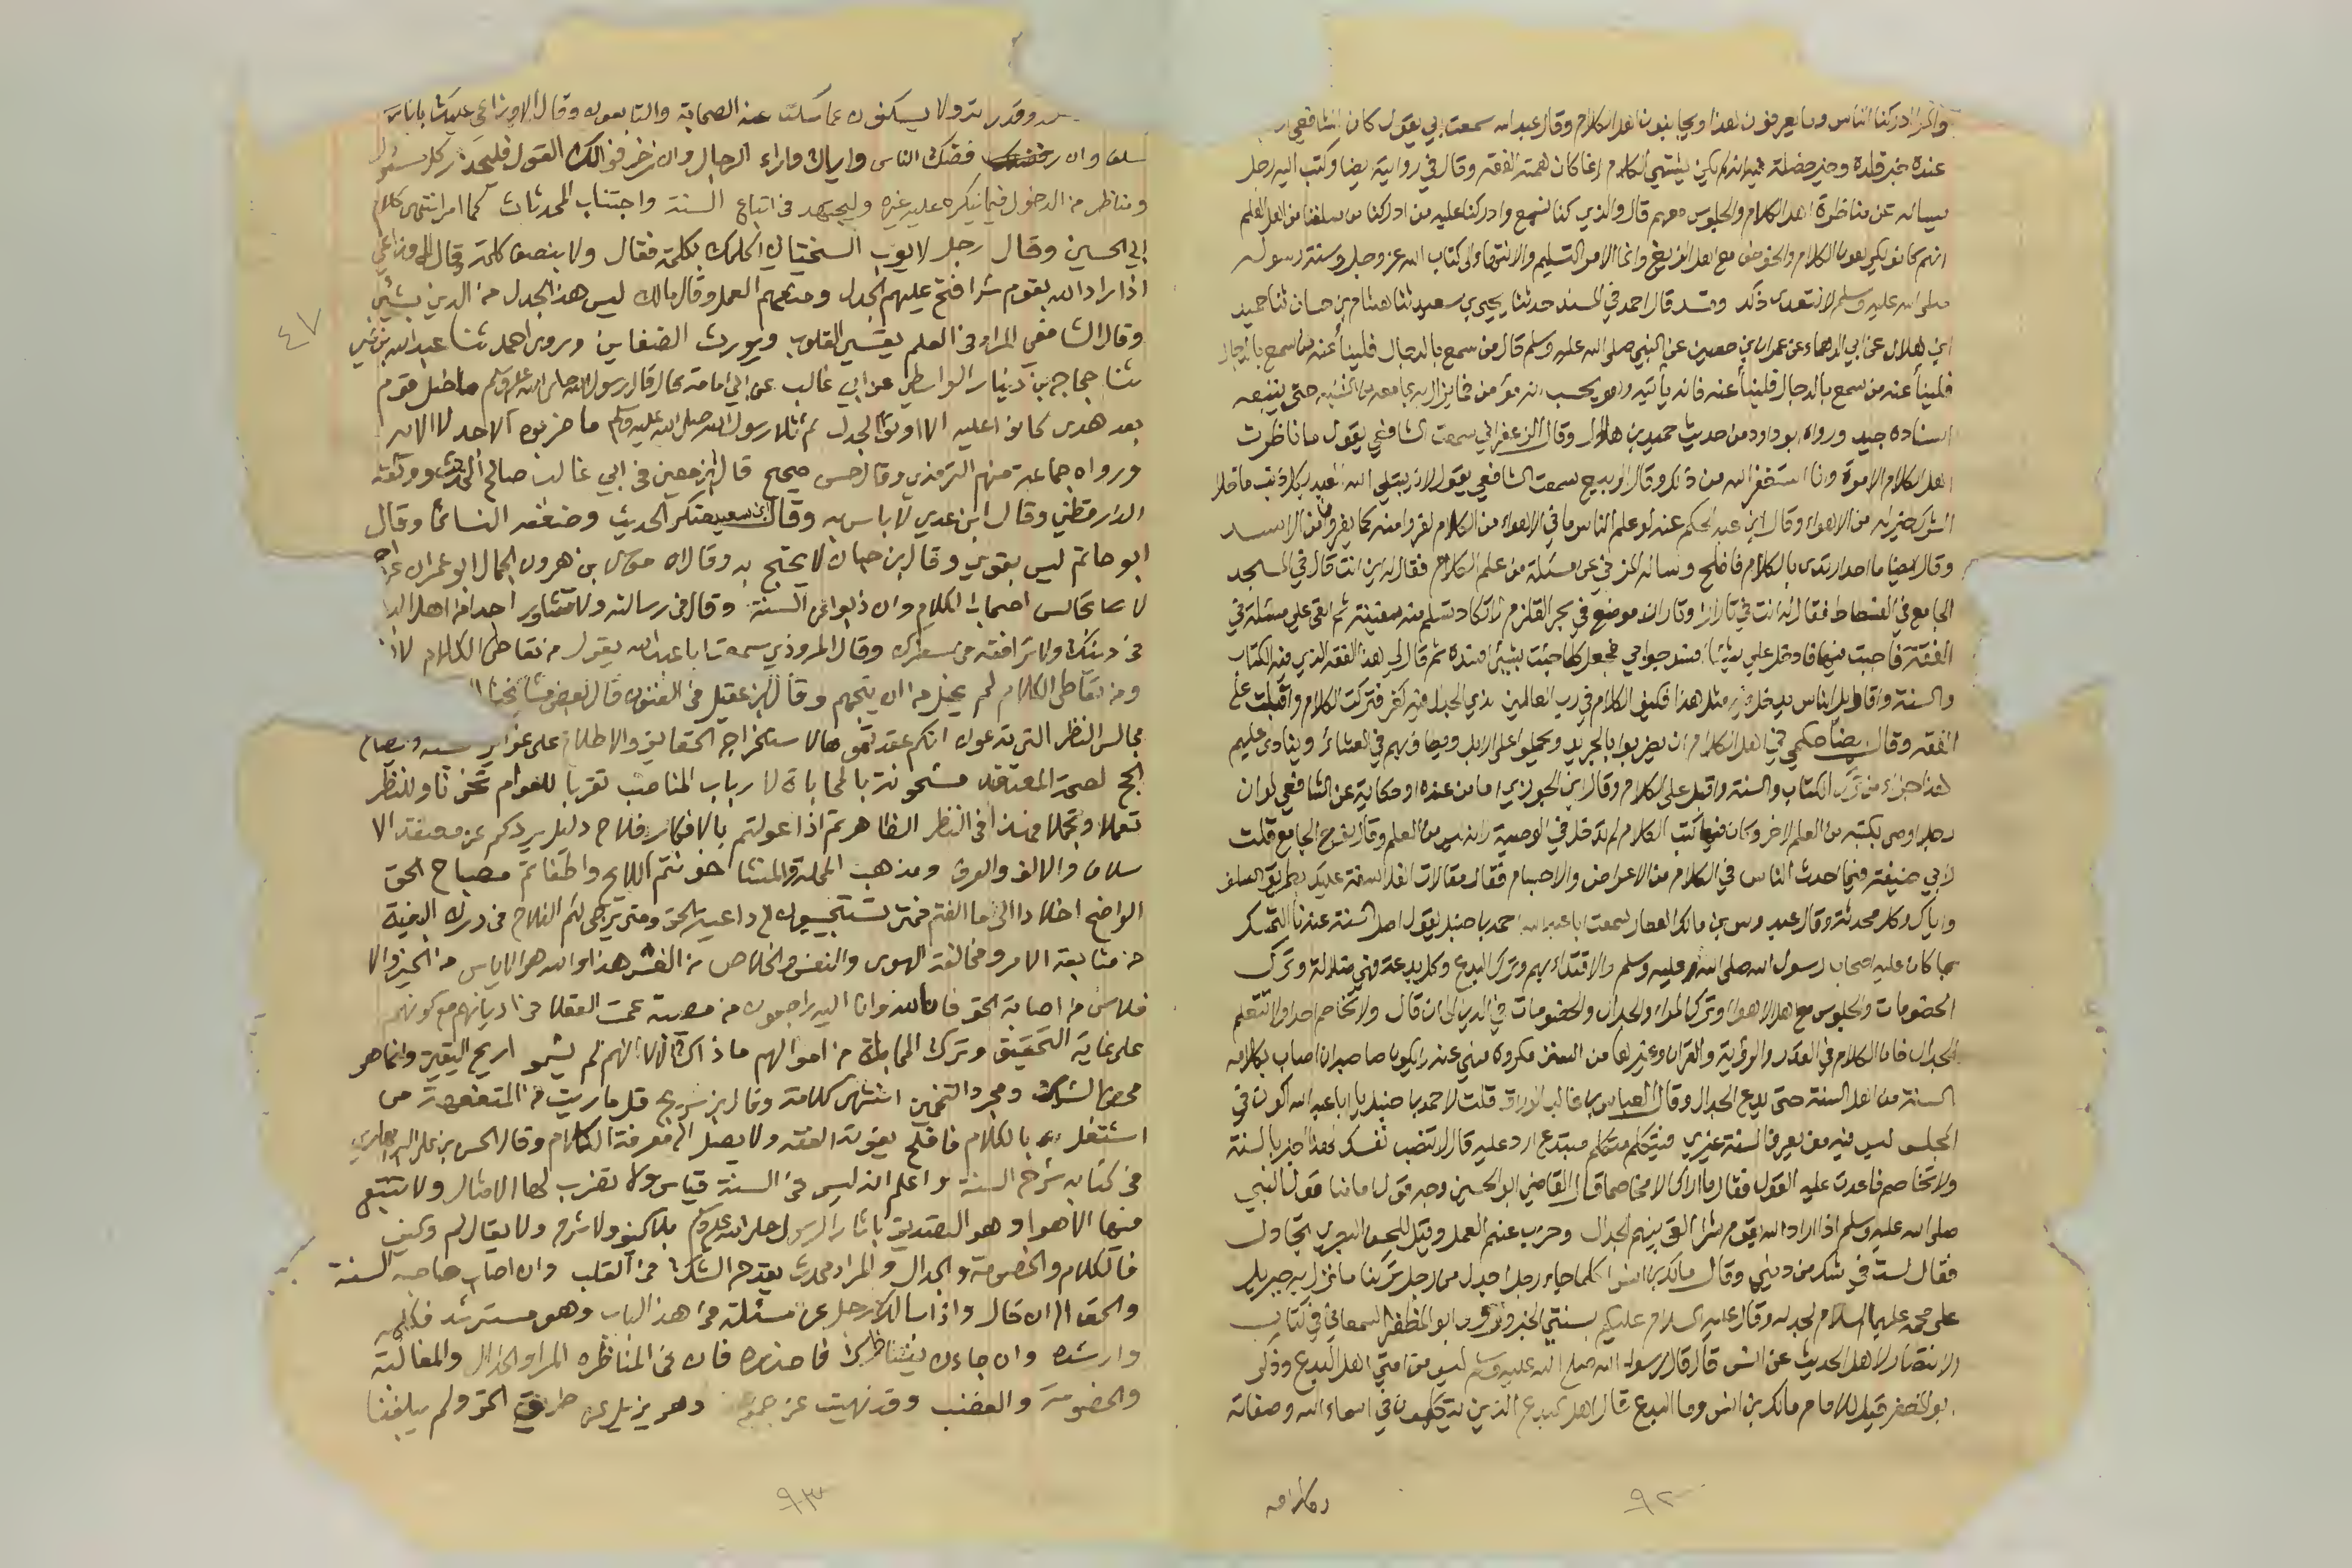 والله ادركنا الناس وما يعرفون هذا ويجانبون اهل الكلام وقال عبد الله سمعت ابي يقول كان الشافعي اذا
عنده خبر قلده وخير خصلة فيه انه لم يكن يشتهي الكلام انما كان همته الفقه وقال في رواية ايضا وكتب اليه رجل
يساله عن مناظرة اهل الكلام والجلوس معهم قال والذي كنا نسمع وادركنا عليه من ادركنا من سلفنا من اهل العلم
انهم كانوا يكرهون الكلام والخوض مع اهل الزيغ وانما الامر التسليم والانتهاء الى كتاب الله عز وجل وسنة رسوله
صلى الله عليه وسلم لا تتعدى ذلك وقد قال احمد في المسند حدثنا يحيى بن سعيد ثنا هشام بن حسان ثنا حميد
ابن هلال عن ابي الدهماء عن عمران بن حصين عن النبي صلى الله عليه وسلم قال من سمع بالدجال فلينأ عنه من سمع بالدجال
فلينأ عنه من سمع بالدجال فلينأ عنه فانه ياتيه وهو يحسب انه مؤمن فما يزال به بما معه من الشبه حتى يتبعه
اسناده جيد ورواه ابو داود من حديث حميد بن هلال وقال الزعفراني سمعت الشافعي يقول ما ناظرت
اهل الكلام الا مرة وانا استغفر الله من ذلك وقال الربيع سمعت الشافعي يقول لان يبتلى الله العبد بكل ذنب ما خلا
الشرك خير له من الاهواء وقال ابن عبد الحكم عنه لو علم الناس ما في الاهواء من الكلام لفروا منه كما يفرون من الاسد
وقال ايضا ما احد ارتدى بالكلام فافلح وساله المزني عن مسئلة من علم الكلام فقال له اين انت قال في المسجد
الجامع في الفسطاط فقال له انت في تاران وتاران موضع في بحر القلزم لا تكاد تسلم منه سفينة ثم القى علي مسئلة في
الفقه فاجبت فيها فادخل علي شيئا افسد جوابي فجعل كلما جئت بشيء افسده ثم قال لي هذا الفقه الذي فيه الكتاب
والسنة واقاويل الناس يدخله مثل هذا فكيف الكلام في رب العالمين الذي الجدال فيه كفر فتركت الكلام واقبلت على
الفقه وقال ايضا حكمي في اهل الكلام ان يضربوا بالجريد ويحملوا على الابل ويطاف بهم في العشائر وينادى عليهم
هذا جزاء من ترك الكتاب والسنة واقبل على الكلام وقال ابن الجوزي اما من عنده او حكاية عن الشافعي لو ان
رجلا اوصى بكتبه من العلم لاخر وكان فيها كتب الكلام لم تدخل في الوصية لانه ليس من العلم وقال نوح الجامع قلت
لابي حنيفة فيما احدث الناس في الكلام من الاعراض والاجسام فقال مقالات الفلاسفة عليك بطريق السلف
واياك وكل محدثة وقال عبدوس بن مالك العطار سمعت ابا عبد الله احمد بن حنبل يقول اصل السنة عندنا التمسك
بما كان عليه اصحاب رسول الله صلى الله عليه وسلم والاقتداء بهم وترك البدع وكل بدعة فهي ضلالة وترك
الخصومات والجلوس مع اهل الاهواء وترك المراء والجدال والخصومات في الدين الى ان قال ولا تخاصم احدا ولا تتعلم
الجدال فان الكلام في القدر والرؤية والقران وغيرها من السنن مكروه منهي عنه لا يكون صاحبه ان اصاب بكلامه
السنة من اهل السنة حتى يدع الجدال وقال العباس بن غالب الوراق قلت لاحمد بن حنبل يا ابا عبد الله اكون في
المجلس ليس فيه من يعرف السنة غيري فيتكلم متكلم مبتدع ارد عليه قال لا تنصب نفسك لهذا اخبر بالسنة
ولا تخاصم فاعدت عليه القول فقال ما اراك الا مخاصما قال القاضي ابو الحسين وجه قول امامنا قول النبي
صلى الله عليه وسلم اذا اراد الله بقوم شرا القى بينهم الجدال وخزن عنهم العمل وقيل للحسن البصري تجادل
فقال لست في شك من ديني وقال مالك بن انس كلما جاء رجل اجدل من رجل تركنا ما نزل به جبريل
على محمد عليهما السلام لجدله وقال عليه السلام عليكم بسنتي الخبر وروى ابو المظفر السمعاني في كتاب
الانتصار لاهل الحديث عن انس قال قال رسول الله صلى الله عليه وسلم ليس من امتي اهل البدع وذكر
ابو المظفر قيل للامام مالك بن انس وما البدع قال اهل البدع الذين يتكلمون في اسماء الله وصفاته
وكلامه
٩٢
وقدرته ولا يسكتون عما سكت عنه الصحابة والتابعون وقال الاوزاعي عليك باثار
سلف وان رفضك الناس واياك واراء الرجال وان زخرفوا لك القول فليحذر كل مسئول
ومناظر من الدخول فيما ينكره عليه غيره وليجتهد في اتباع السنة واجتناب المحدثات كما امر انتهى كلام
ابي الحسين وقال رجل لايوب السختياني اكلمك بكلمة فقال ولا بنصف كلمة وقال الاوزاعي
اذا اراد الله بقوم شرا فتح عليهم الجدل ومنعهم العمل وقال مالك ليس هذا الجدل من الدين بشيء
وقال الشافعي المراء في العلم يقسي القلوب ويورث الضغاين وروى احمد ثنا عبد الله بن نمير
ثنا حجاج بن دينار الواسطي عن ابي غالب عن ابي امامة قال قال رسول الله صلى الله عليه وسلم ما ضل قوم
بعد هدى كانوا عليه الا اوتوا الجدل ثم تلا رسول الله صلى الله عليه وسلم ما ضربوه لك الا جدلا الاية
ورواه جماعة منهم الترمذي وقال حسن صحيح قال ابن معين في ابي غالب صالح الحديث ووثقه
الدارقطني وقال ابن عدي لا باس به وقال ابن سعد منكر الحديث وضعفه النسائي وقال
ابو حاتم ليس بقوي وقال ابن حبان لا يحتج به وقال موسى بن هرون الحمال ابو عمران
لا تجالس اصحاب الكلام وان ذبوا عن السنة وقال في رسالته ولا تشاور احدا من اهل البدع
في دينك ولا ترافقه في سفرك وقال المروذي سمعت ابا عبد الله يقول من تعاطى الكلام لا
ومن تعاطى الكلام لم يخل من ان يتجهم وقال ابن عقيل في الفنون قال بعض مشايخنا
مجالس النظر التي تدعون انكم عقدتموها لاستخراج الحقايق والاطلاع على
الحج لصحة المعتقد مشحونة بالمحاباة لارباب المناصب تقربا للعوام تخونا وللنظر
تعملا وتجملا فهذا في النظر الظاهر ثم اذا عولتم بالافكار فلاح دليل يردكم عن معتقد الا
سلاف والالف والعرف ومذهب المحلة والمنشا خونتم اللايح واطفاتم مصباح الحق
الواضح اخلادا الى ما الفتم فمتى تستجيبون الى داعية الحق ومتى يرجى لكم الفلاح في درك البغية
من متابعة الامر ومخالفة الهوى والنفس والخلاص من الغش هذا والله هو الاياس من الخير والا
فلاس من اصابة الحق فانا لله وانا اليه راجعون من مصيبة عمت العقلاء في اديانهم مع كونهم
على غاية التحقيق وترك المحاباة في اموالهم ما ذاك الا لانهم لم يشموا ريح اليقين وانما هو
محض الشك ومجرد التخمين انتهى كلامه وقال ابن سريج قل ما رايت من المتفقهة من
اشتغل بالكلام فافلح يفوته الفقه ولا يصل الى معرفة الكلام وقال الحسن بن علي البربهاري
في كتابه شرح السنة واعلم انه ليس في السنة قياس ولا تضرب لها الامثال ولا تتبع
فيها الاهواء وهو التصديق باثار الرسول صلى الله عليه وسلم بلا كيف ولا شرح ولا يقال لم وكيف
فالكلام والخصومة والجدال والمراء محدث يقدح الشك في القلب وان اصاب صاحبه السنة
والحق الى ان قال واذا سالك رجل عن مسئلة في هذا الباب وهو مسترشد فكلمه
وارشده وان جاءك يناظرك فاحذره فان في المناظرة المراء والجدال والمغالبة
والخصومة والغضب وقد نهيت عن جميع وهو يزيل عن طريق الحق ولم يبلغنا
٩٣
٤٧